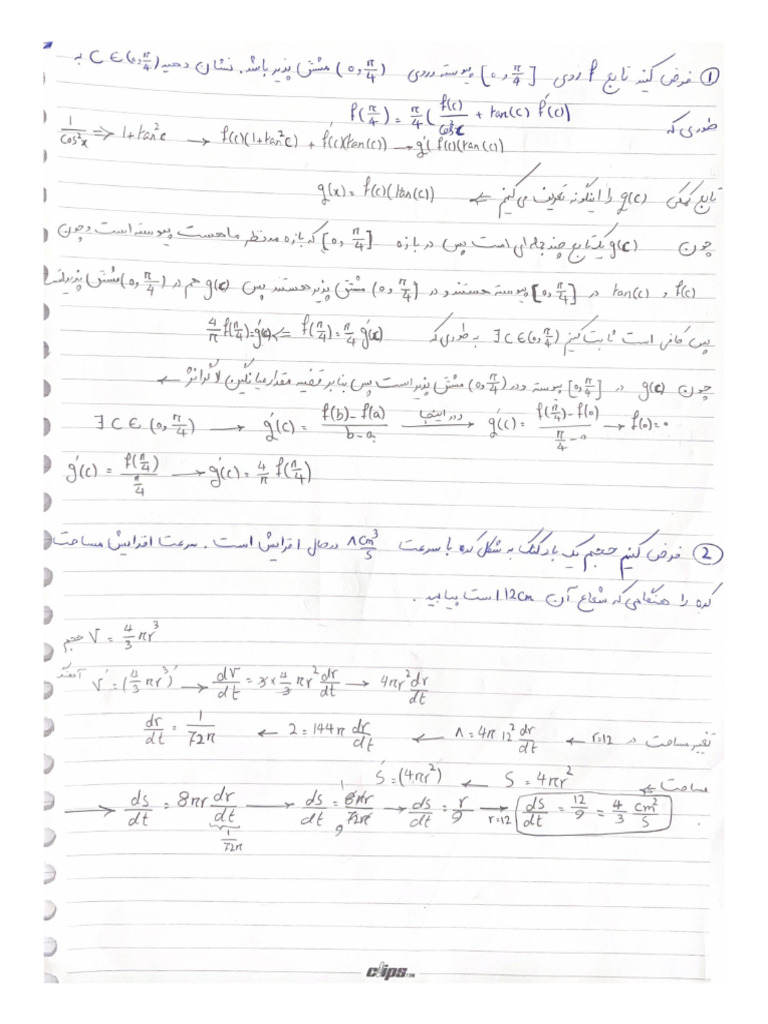 ① فرض کنید تابع f روی [0, π/4] پیوسته و روی (0, π/4) مشتق پذیر باشد. نشان دهید C ∈ (0, π/4) به
طوری که f(π/4) = π/4 ( f(c)/cos²x + tan(c) f'(c) )
1/cos²x ⇒ 1+tan²c → f(c)(1+tan²c) + f'(c)(tan(c)) → g'( f(c)(tan(c))
تابع کمکی g(c) را اینگونه تعریف می‌کنیم ← g(x) = f(c)(tan(c))
چون g(c) یک تابع چند جمله‌ای است پس در بازه [0, π/4] که بازه مد نظر ما هست پیوسته است و چون
f(c) و tan(c) در [0, π/4] پیوسته هستند و در (0, π/4) مشتق پذیر هستند پس g(c) هم در (0, π/4) مشتق پذیر است
پس کافی است ثابت کنیم ∃ C ∈ (0, π/4) به طوری که f(π/4) = π/4 g'(x) => 4/π f(π/4) = g'(c)
چون g(c) در [0, π/4] پیوسته و در (0, π/4) مشتق پذیر است پس بنابر قضیه مقدار میانگین لاگرانژ ←
∃ C ∈ (0, π/4) → g'(c) = f(b)-f(a)/b-a در اینجا → g'(c) = f(π/4)-f(0)/π/4-0 → f(0)=0
g'(c) = f(π/4)/π/4 → g'(c) = 4/π f(π/4)
② فرض کنیم حجم یک بادکنک به شکل کره با سرعت ۸ cm³/s در حال افزایش است. سرعت افزایش مساحت
کره را هنگامی که شعاع آن 12cm است بیابید.
حجم V = 4/3 πr³
آهنگ V' = (4/3 πr³)' → dV/dt = 3×4/3 πr² dr/dt → 4πr² dr/dt
تغییر مساحت در r=12 ← ۸ = 4π 12² dr/dt ← 2 = 144π dr/dt ← dr/dt = 1/72π
مساحت ← S = 4πr² ← S' = (4πr²)'
→ ds/dt = 8πr dr/dt 1/72π → ds/dt = 8πr/72π 1 9 → ds/dt = r/9 → r=12 ds/dt = 12/9 = 4/3 cm²/s
clips